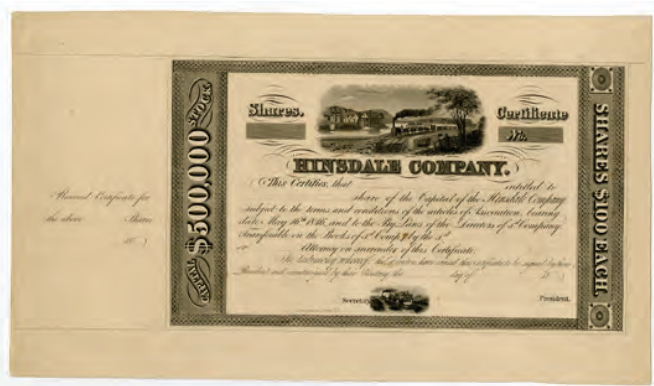 Received Certificate for
the above Shares
18
CAPITAL $500,000 STOCK
Shares.
Certificate
No.
HINSDALE COMPANY.
This Certifies, that entitled to
share of the Capital of the Hinsdale Company
subject to the terms and conditions of the articles of Association, bearing
date May 16th 1846, and to the By Laws of the Directors of sd Company.
Transferable on the Books of sd Compy by the sd
or Attorney on surrender of this Certificate.
In testimony whereof the have caused this certificate to be signed by their
President and countersigned by their Secretary this day of 18
Secretary
President.
SHARES $100 EACH.